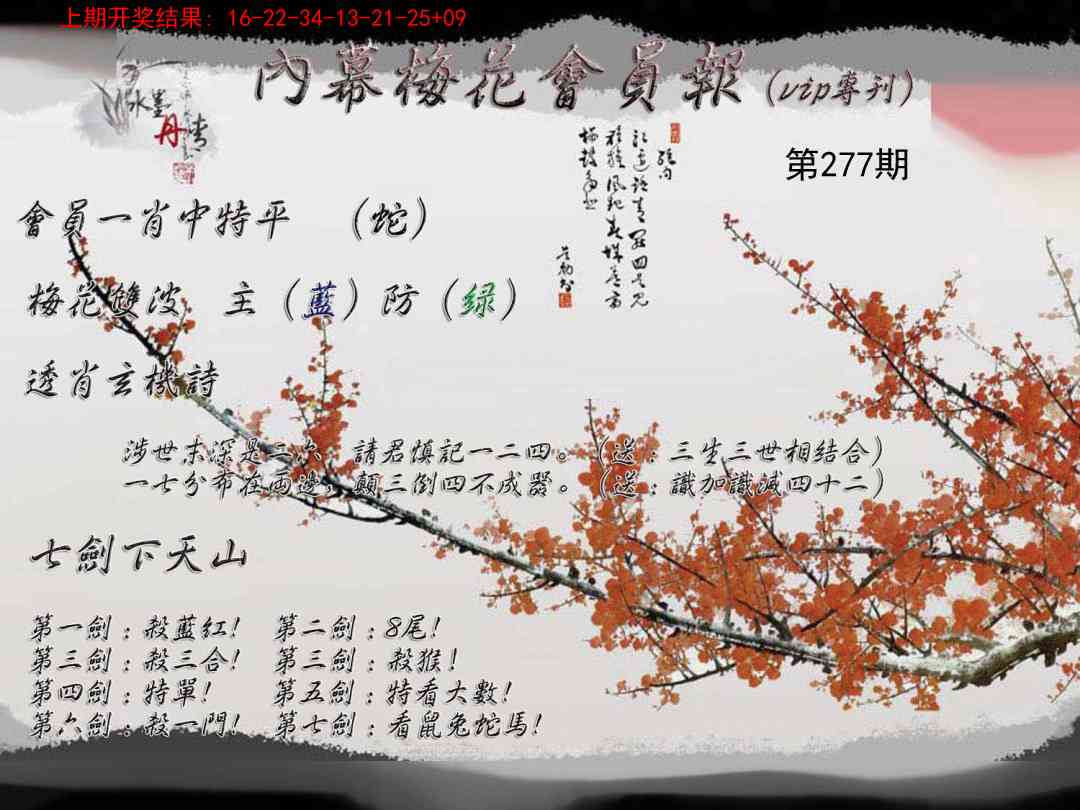 上期开奖结果: 16-22-34-13-21-25+09
內幕梅花會員報(vip專刊)
水墨
丹青
第277期
會員一肖中特平 (蛇)
梅花雙波 主(藍)防(绿)
透肖玄機詩
涉世未深是二六 請君慎記一二四。(送:三生三世相结合)
一七分布在兩邊 顛三倒四不成器。(送:識加識減四十二)
七劍下天山
第一劍:殺藍紅! 第二劍:8尾!
第三劍:殺三合! 第三劍:殺猴!
第四劍:特單! 第五劍:特看大數!
第六劍:殺一門! 第七劍:看鼠兔蛇馬!